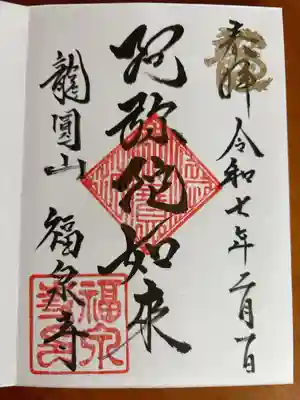 奉拝
令和七年二月一日
阿弥陀如来
龍圓山
福泉寺
福泉寺